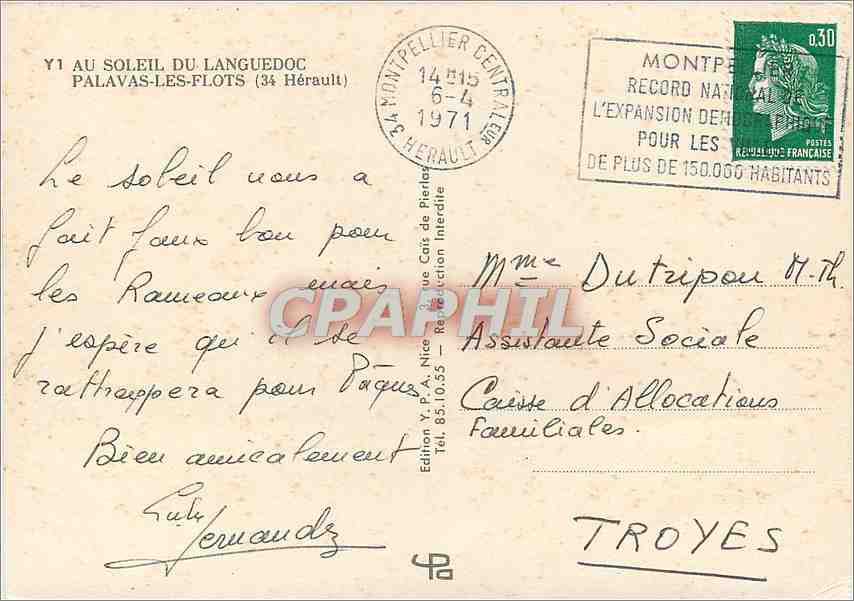 Y1 AU SOLEIL DU LANGUEDOC
PALAVAS-LES-FLOTS (34 Hérault)
34 MONTPELLIER CENTRALEUR
14H15
6-4
1971
HERAULT
MONTPELLIER
RECORD NATIONAL DE
L'EXPANSION DEMOGRAPHIQUE
POUR LES
DE PLUS DE 150.000 HABITANTS
0,30
POSTES
REPUBLIQUE FRANÇAISE
Le soleil nous a
fait faux bon pour
les Rameaux mais
j'espère qu'il se
rattrappera pour Pâques
Bien amicalement
Hernandez
Edition Y. P. A. Nice 3, rue Caïs de Pierlas
Tél. 85.10.55 — Reproduction Interdite
CPAPHIL
Mme Dutripon M.Th.
Assistante Sociale
Caisse d'Allocations
Familiales.
TROYES